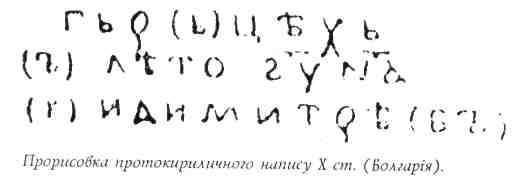 ГЬР(Ь)ЦѢХЬ
(Ъ) ЛѢТО Ѕ҃У҃Н҃А҃
(Г) И ДИМИТРѢ (БЪ)
Прорисовка протокириличного напису X ст. (Болгарія).